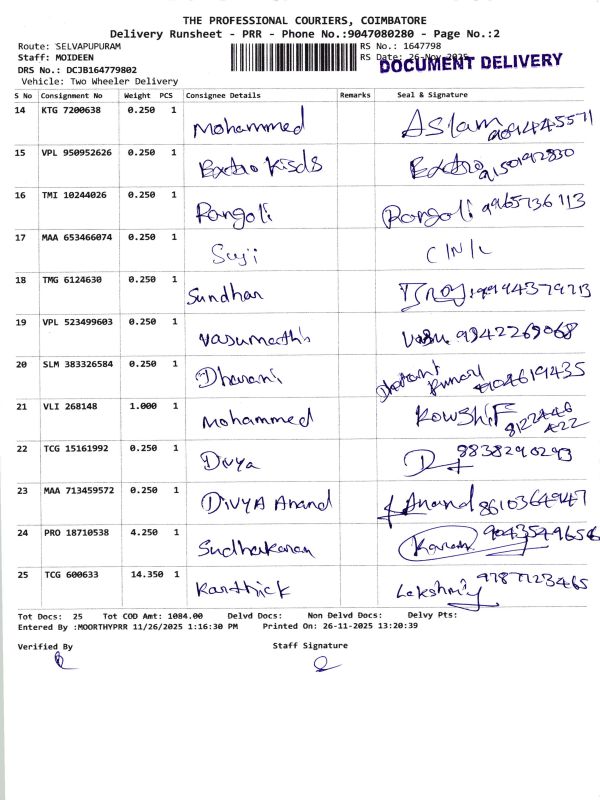 THE PROFESSIONAL COURIERS, COIMBATORE
Delivery Runsheet - PRR - Phone No.:9047080280 - Page No.:2
Route: SELVAPUPURAM RS No.: 1647798
Staff: MOIDEEN RS Date: 26-Nov-2025
DOCUMENT DELIVERY
DRS No.: DCJB164779802
Vehicle: Two Wheeler Delivery
S No Consignment No Weight PCS Consignee Details Remarks Seal & Signature
14 KTG 7200638 0.250 1 Mohammed Aslam
15 VPL 950952626 0.250 1
16 TMI 10244026 0.250 1 Rangoli Rangoli 9965736113
17 MAA 653466074 0.250 1 Suji
18 TMG 6124630 0.250 1 Sundhar
19 VPL 523499603 0.250 1 Vasu. 9942269068
20 SLM 383326584 0.250 1 Dharani
21 VLI 268148 1.000 1 Mohammed Kowshif
22 TCG 15161992 0.250 1 Divya 8838290293
23 MAA 713459572 0.250 1 DivyA Anand Anand 8610364947
24 PRO 18710538 4.250 1 Sudhakaran
25 TCG 600633 14.350 1 Karthick 9787723465
Tot Docs: 25 Tot COD Amt: 1084.00 Delvd Docs: Non Delvd Docs: Delvy Pts:
Entered By :MOORTHYPRR 11/26/2025 1:16:30 PM Printed On: 26-11-2025 13:20:39
Verified By Staff Signature